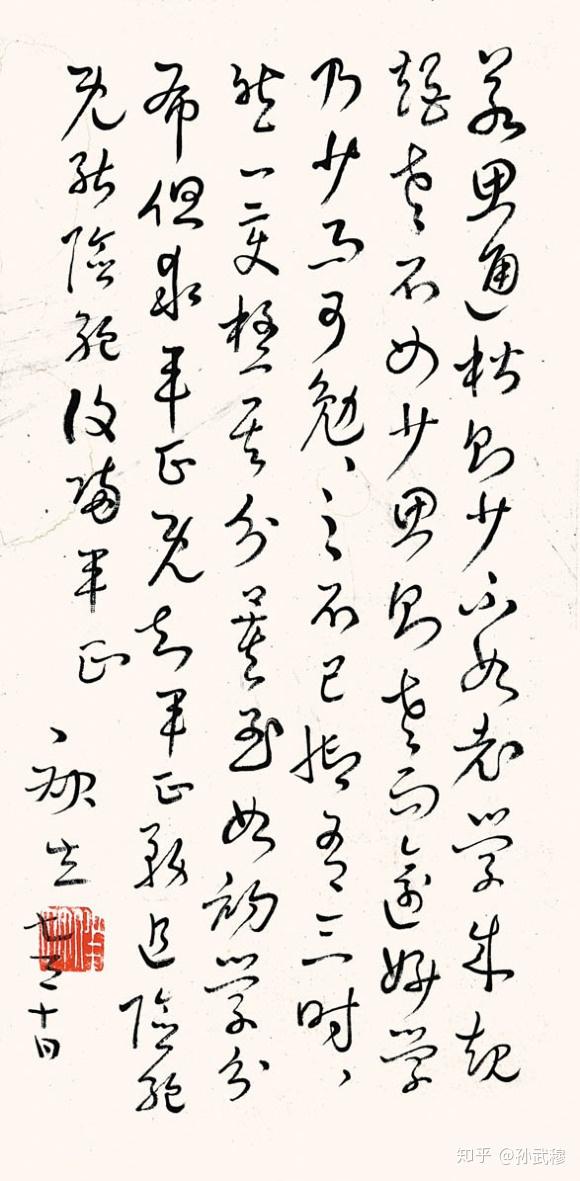 若思通楷則少不如老學成規
矩老不如少思則老而逾妙學
乃少而可勉、之不已抑有三時、
然一變極其分矣至如初學分
布但求平正既知平正務追險絕
既能險絕復歸平正
生
知乎 @孙武穆